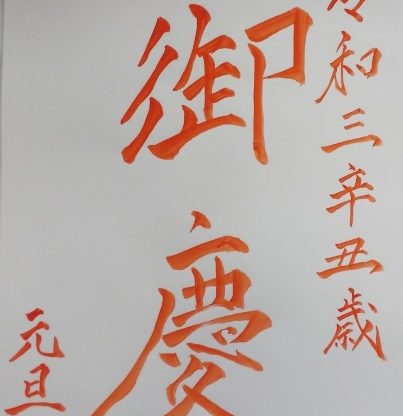 令和三辛丑歳
御慶
元旦